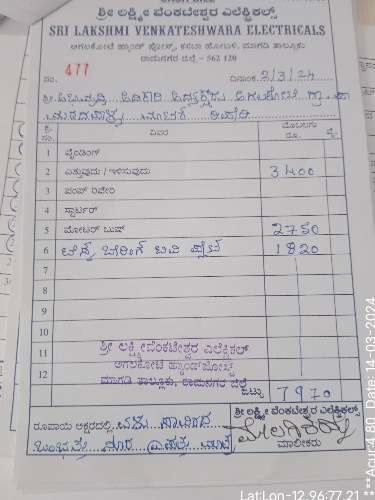 CASH BILL
ಶ್ರೀ ಲಕ್ಷ್ಮೀ ವೆಂಕಟೇಶ್ವರ ಎಲೆಕ್ಟ್ರಿಕಲ್ಸ್
SRI LAKSHMI VENKATESHWARA ELECTRICALS
ಅಗಲಕೋಟೆ ಹ್ಯಾಂಡ್ ಪೋಸ್ಟ್, ಕಸಬಾ ಹೋಬಳಿ, ಮಾಗಡಿ ತಾಲ್ಲೂಕು
ರಾಮನಗರ ಜಿಲ್ಲೆ - 562 120
ನಂ. 477 ದಿನಾಂಕ: 2/3/24
ಶ್ರೀ
ಕ್ರ. ಸಂ. ವಿವರ ಮೊಬಲಗು ರೂ. ಪೈ.
1 ವೈಂಡಿಂಗ್
2 ಎತ್ತುವುದು / ಇಳಿಸುವುದು 3400
3 ಪಂಪ್ ರಿಪೇರಿ
4 ಸ್ಟಾರ್ಟರ್
5 ಮೋಟರ್ ಬುಷ್ 2750
6 ಬೇರಿಂಗ್ 1820
7
8
9
10
11
12
ಶ್ರೀ ಲಕ್ಷ್ಮೀವೆಂಕಟೇಶ್ವರ ಎಲೆಕ್ಟ್ರಿಕಲ್
ಅಗಲಕೋಟೆ ಹ್ಯಾಂಡ್‌ಪೋಸ್ಟ್
ಮಾಗಡಿ ತಾಲ್ಲೂಕು, ರಾಮನಗರ ಜಿಲ್ಲೆ
ಒಟ್ಟು 7970
ರೂಪಾಯಿ ಅಕ್ಷರದಲ್ಲಿ ಏಳು ಸಾವಿರದ
ಒಂಭತ್ತು ನೂರ ಎಪ್ಪತ್ತು
ಶ್ರೀ ಲಕ್ಷ್ಮೀ ವೆಂಕಟೇಶ್ವರ ಎಲೆಕ್ಟ್ರಿಕಲ್ಸ್
ಮಾಲೀಕರು
Lat:Lon-12.96:77.21
***Acur:4.80 Date: 14-03-2024